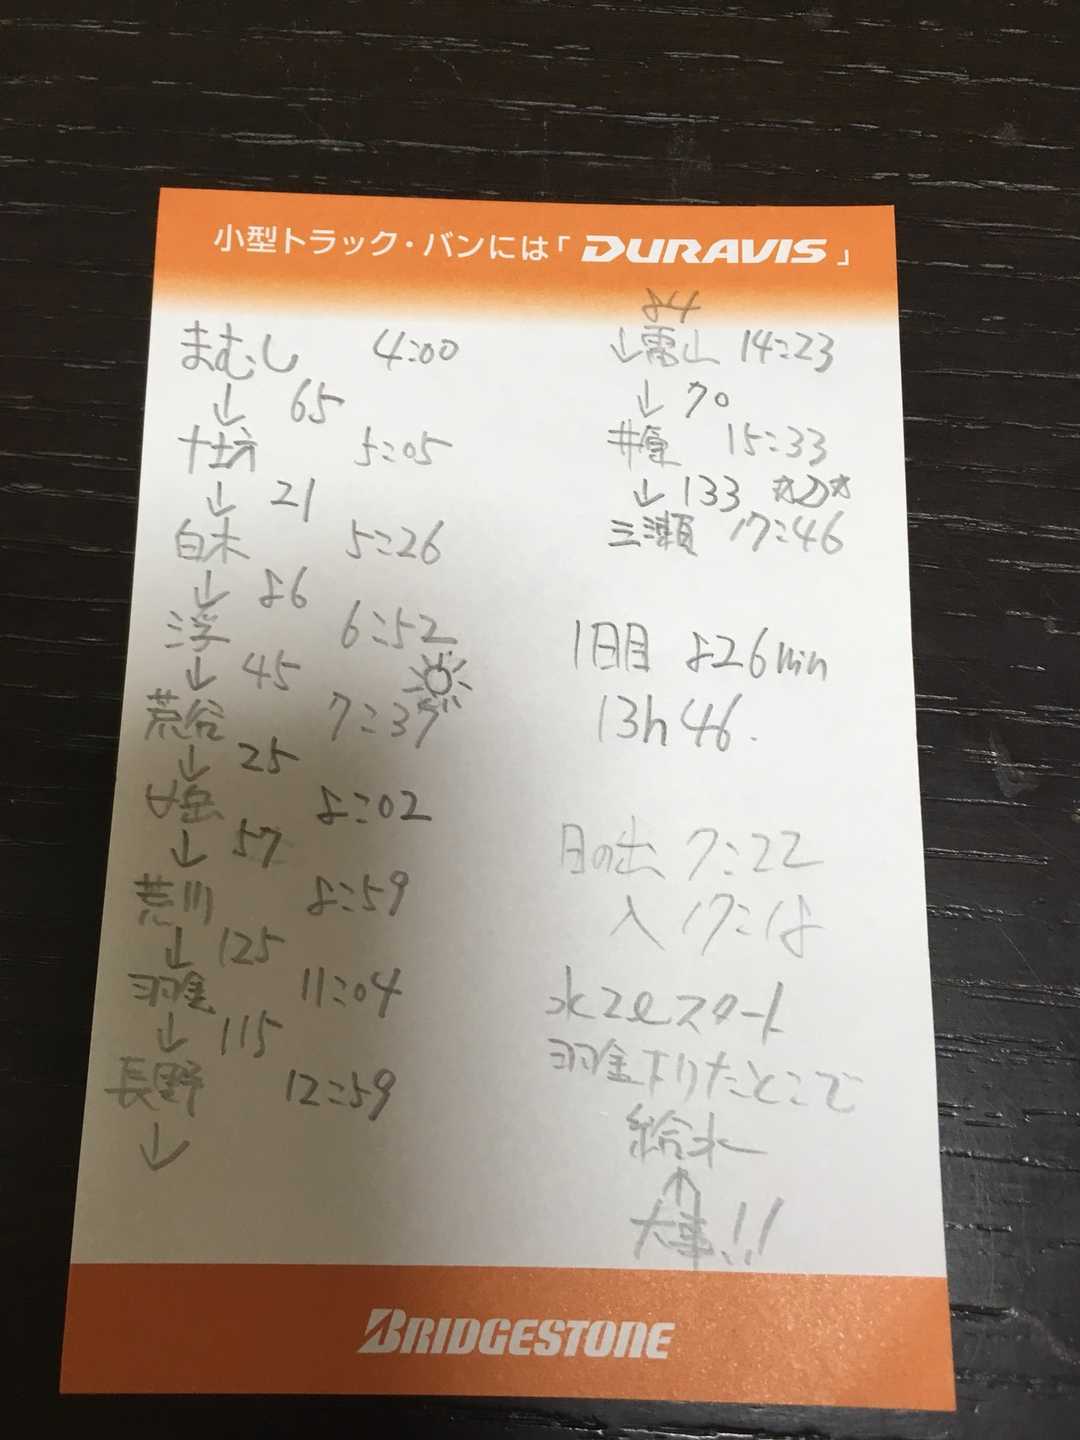 小型トラック・バンには「DURAVIS」
まむし 4:00
↓ 65
十坊 5:05
↓ 21
白木 5:26
↓ 86
浮 6:52
↓ 45
荒谷 7:37
↓ 25
女岳 8:02
↓ 57
荒川 8:59
↓ 125
羽金 11:04
↓ 115
長野 12:59
↓
84
↓雷山 14:23
↓ 70
井原 15:33
↓ 133
三瀬 17:46
1日目 826min
13h46.
日の出 7:22
入 17:18
水2ℓスタート
羽金下りたとこで
給水
↑
大事!!
BRIDGESTONE